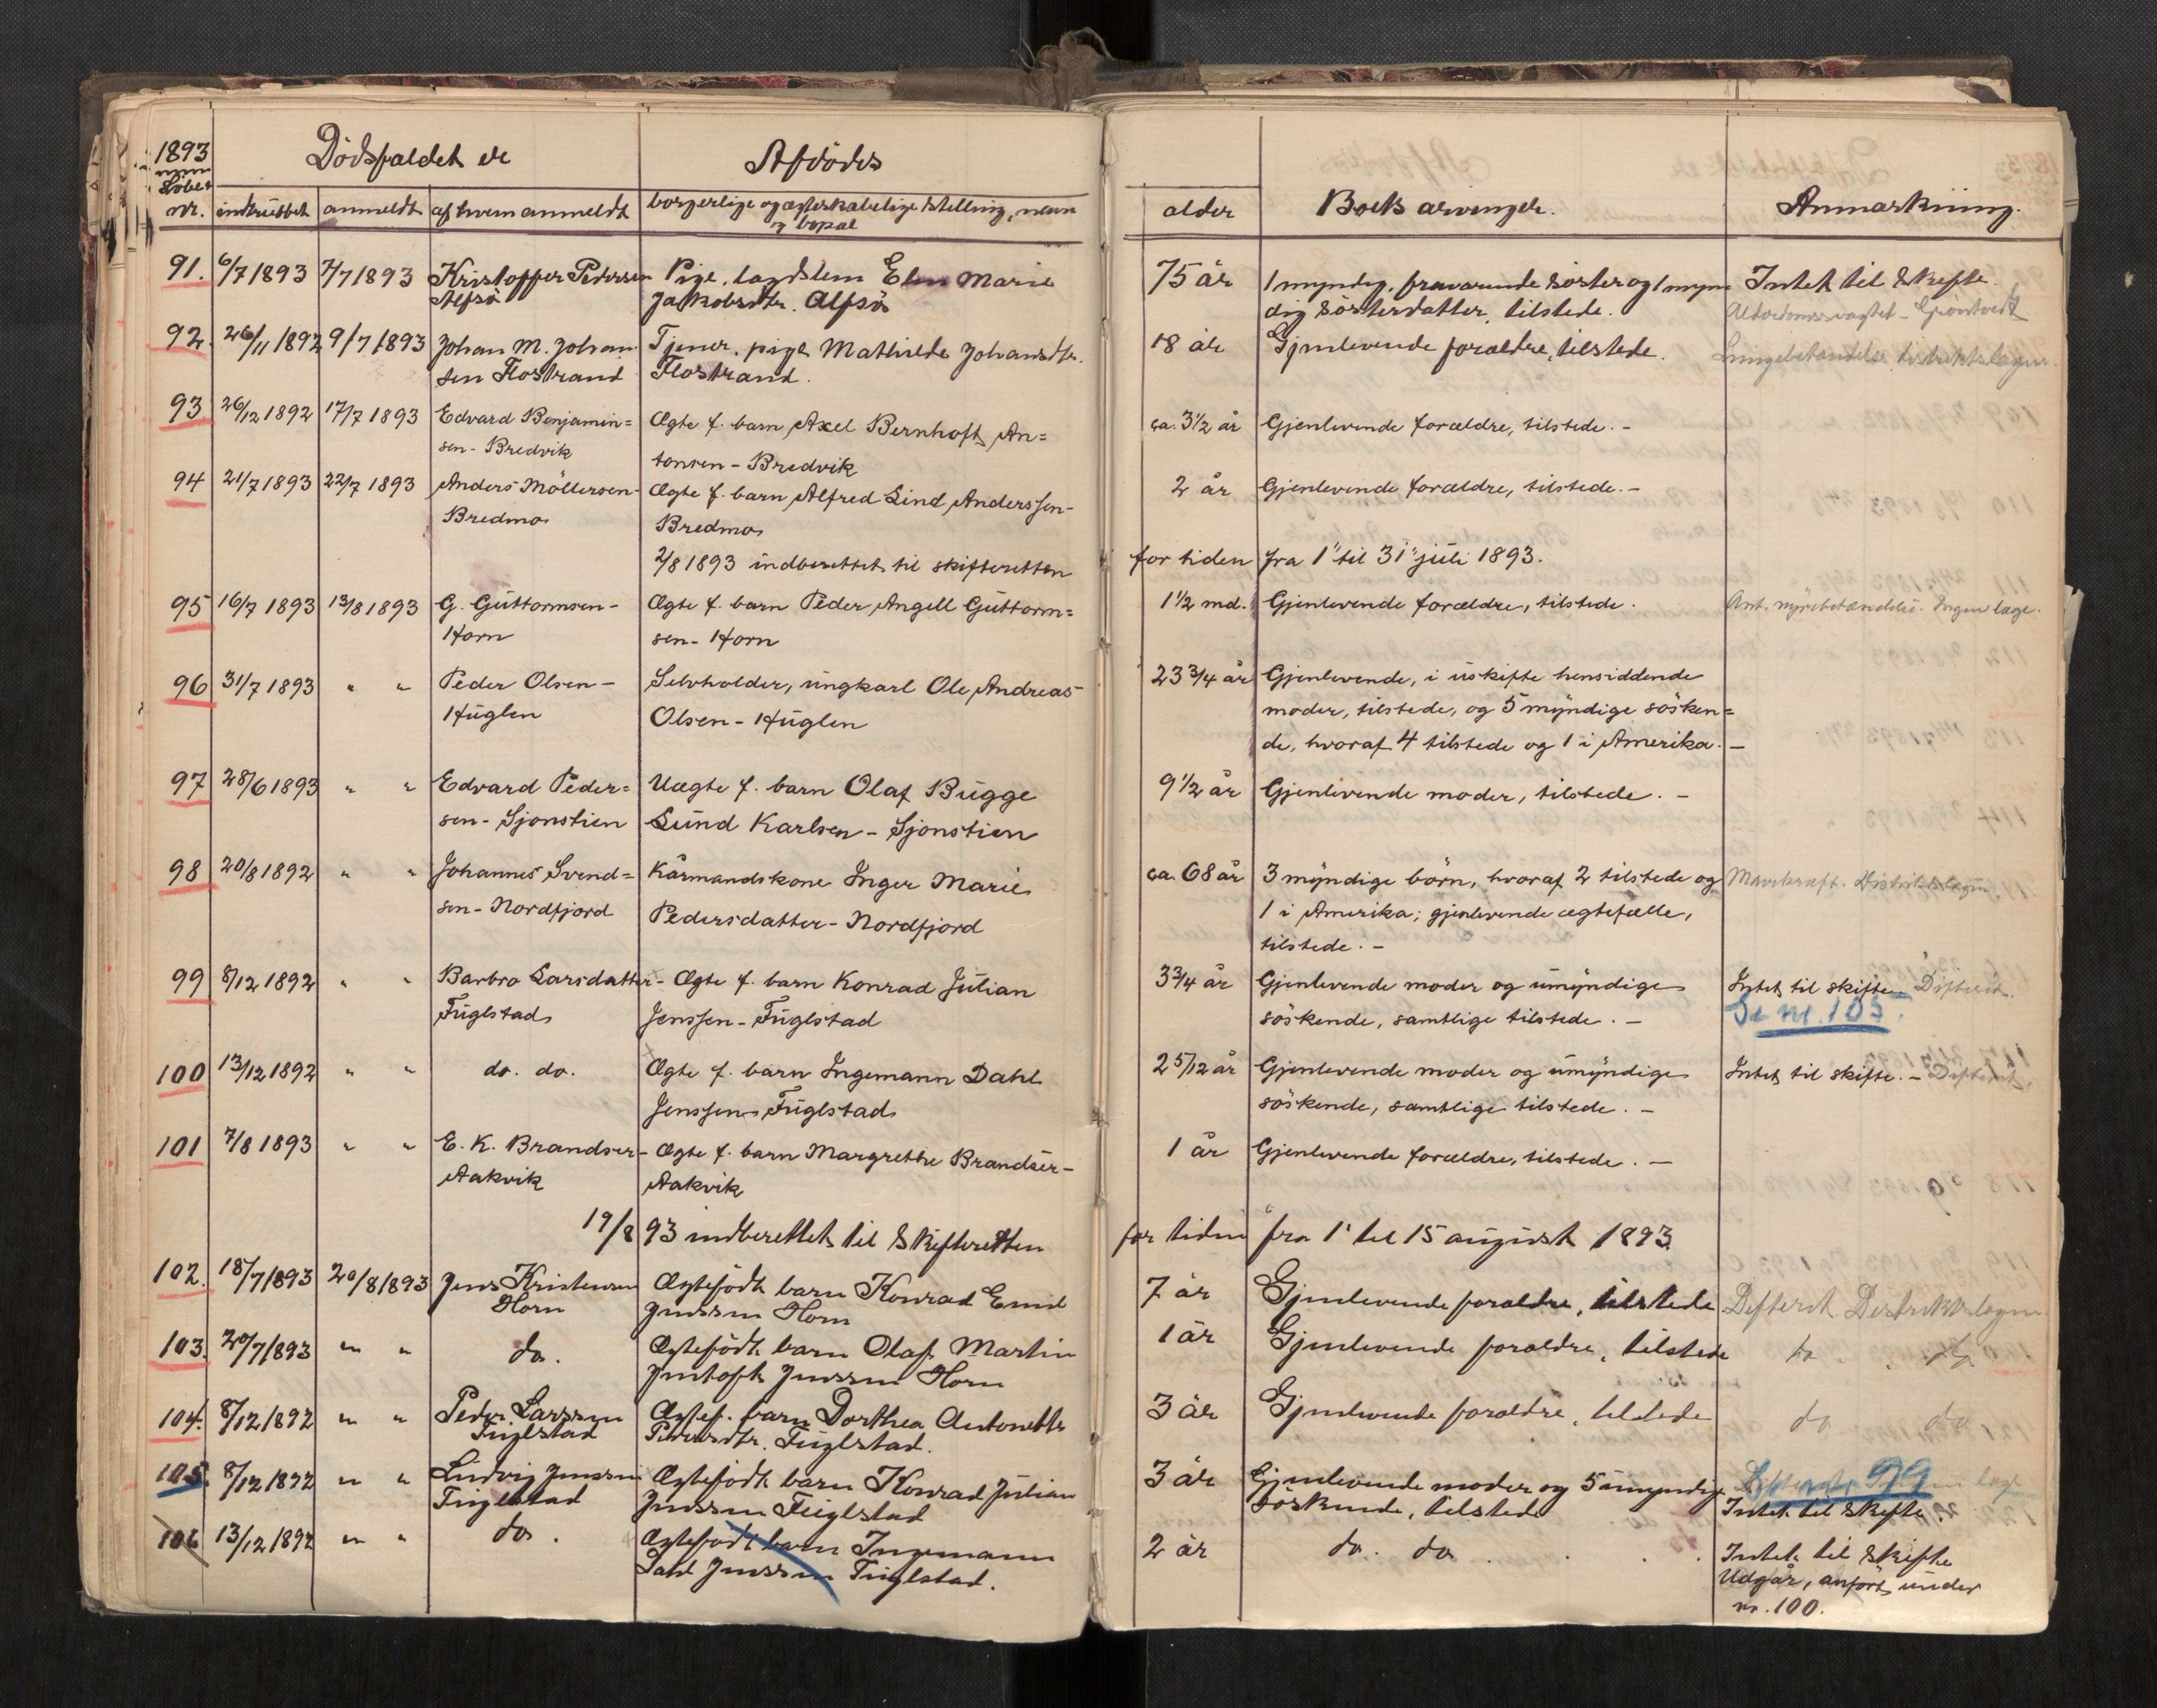 1893
Dödsfaldet er
Afdödes
Löbe
nr. indtruffet anmeldt af hvem anmeldt borgerlige og ægteskabelige stilling, navn
og bopæl
alder Boets arvinger. Anmærkning.
91. 6/7 1893 7/7 1893 Kristoffer Pedersen Pige, Elen Marie 75 år 1 myndig, fraværende söster og 1 myn Intet til skifte
Alfsö Jakobsdtr. Alfsö dig sösterdatter, tilstede.
92. 26/11 1892 9/7 1893 Johan M. Johan Tjener, pige Mathilde Johansdtr. 18 år Gjenlevende forældre, tilstede. Lungebetændelse, distriktslægen
sen Flostrand Flostrand.
93 26/12 1892 17/7 1893 Edvard Benjamin= Ægte f. barn Axel Bernhoft An= ca. 3 1/2 år Gjenlevende forældre, tilstede. -
sen - Bredvik tonsen - Bredvik
94 21/7 1893 22/7 1893 Anders Möllersen - Ægte f. barn Alfred Lind Anderssen - 2 år Gjenlevende forældre, tilstede. -
Bredmo Bredmo
2/8 1893 indberettet til skifteretten for tiden fra 1" til 31" juli 1893.
95 16/7 1893 13/8 1893 G. Guttormsen - Ægte f. barn Peder Angell Guttorm= 1 1/2 md. Gjenlevende forældre, tilstede. Ant. nyrebetændelse. Ingen læge.
Horn sen - Horn
96 31/7 1893 " " Peder Olsen - Selvholder, ungkarl Ole Andreas 23 3/4 år Gjenlevende, i uskifte hensiddende
Huglen Olsen - Huglen moder, tilstede, og 5 myndige sösken=
de, hvoraf 4 tilstede og 1 i Amerika. -
97 28/6 1893 " " Edvard Peder= Uægte f. barn Olaf Bugge 9 1/2 år Gjenlevende moder, tilstede. -
sen - Sjonstien Lund Karlsen - Sjonstien
98 20/8 1892 " " Johannes Svend= Kårmandskone Inger Marie ca. 68 år 3 myndige börn, hvoraf 2 tilstede og Mavekræft. Distriktslægen
sen - Nordfjord Pedersdatter - Nordfjord 1 i Amerika; gjenlevende ægtefælle,
tilstede. -
99 8/12 1892 " " Barbro Larsdatter - Ægte f. barn Konrad Julian 3 3/4 år Gjenlevende moder og umyndige Intet til skifte - Difterit.
Fuglstad Jenssen - Fuglstad söskende, samtlige tilstede. - Se nr. 105.
100 13/12 1892 " " do. do. Ægte f. barn Ingemann Dahl 2 5/12 år Gjenlevende moder og umyndige Intet til skifte. - Difterit.
Jenssen Fuglstad söskende, samtlige tilstede. -
101 7/8 1893 " " E. K. Brandser - Ægte f. barn Margrethe Brandser - 1 år Gjenlevende forældre, tilstede. -
Aakvik Aakvik
19/8 93 indberettet til skifteretten for tiden fra 1' til 15 august 1893.
102. 18/7 1893 20/8 1893 Jens Kristensen Ægtefödt barn Konrad Emil 7 år Gjenlevende forældre, tilstede Difterit Distriktslægen
Horn Jenssen Horn
103. 20/7 1893 " " do. Ægtefödt barn Olaf Martin 1 år Gjenlevende forældre, tilstede do do
Jentoft Jenssen Horn
104. 8/12 1892 " " Peder Larssen Ægtef. barn Dorthea Antonette 3 år Gjenlevende forældre, tilstede do do
Fuglstad Pedersdtr. Fuglstad.
105 8/12 1892 " " Ludvig Jenssen Ægtefödt barn Konrad Julian 3 år Gjenlevende moder og 5 umyndige 99
Fuglstad Jenssen Fuglstad söskende, tilstede Intet til skifte.
106 13/12 1892 " " do. Ægtefödt barn Ingemann 2 år do. do. Intet til skifte
Dahl Jenssen Fuglstad. Udgår, anfört under
nr. 100.